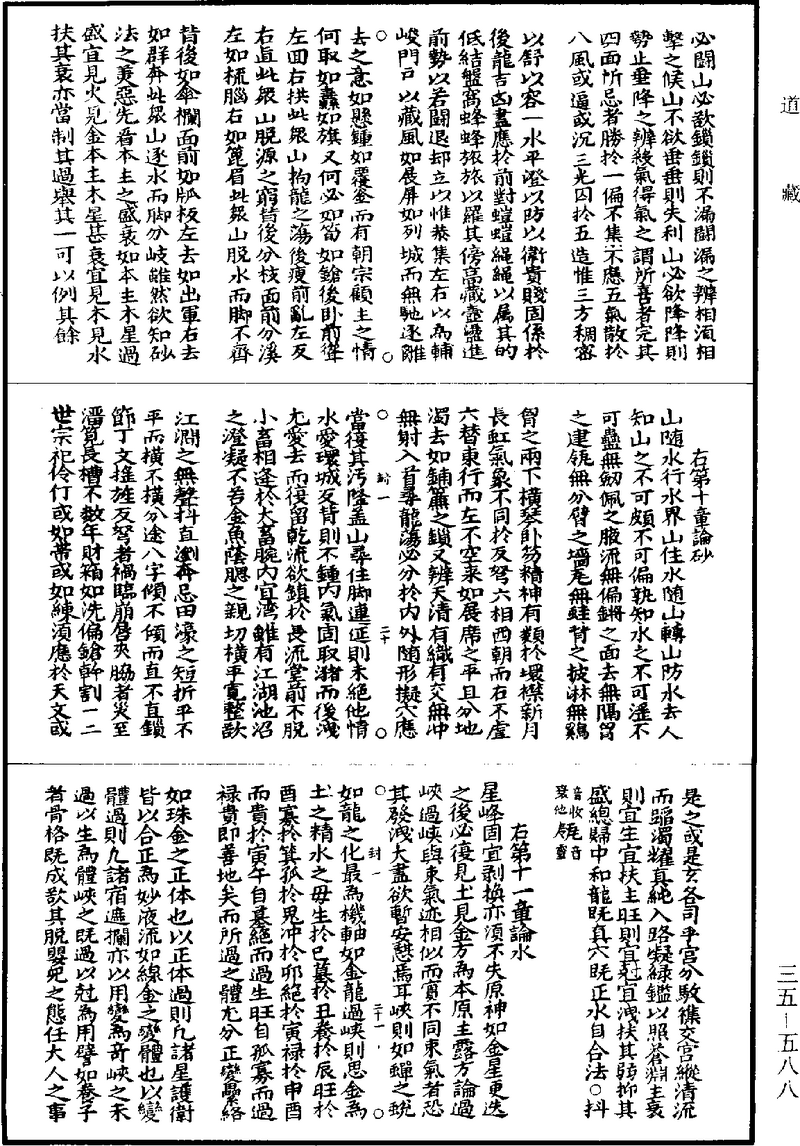 道藏
必鬪山必欲鎖鎖則不漏鬪漏之辨相須相
擊之候山不欲垂垂則失利山必欲降降則
勢止垂降之辨緩氣得氣之謂所喜者完其
四面所忌者勝於一偏不集二不應五氣散於
八風或逼或沉三光囚於五造惟三方稠密
以舒以容一水平澄以防以衛貴賤固係於
後龍吉凶盡應於前對螘螘繩繩以属其的
低結盤窩蜂蜂旅旅以羅其傍高藏壼𧯦進
前勢以若鬪退却立以惟恭集左右以為輔
峻門戶以藏風如展屏如列城而無馳逐離
去之意如懸鍾如覆釜而有朝宗顧主之情
何取如纛如旗又何必如笥如鎗後卧前聳
左回右拱此衆山拘龍之蕩後瘦前亂左反
右直此衆山脫源之窮昔後分枝面前分溪
左如梳腦右如篦眉此衆山脫水而脚不齊
昔後如傘欄面前如瓜板左去如出軍右去
如群奔此衆山逐水而脚分岐雖然欲知砂
法之美惡先看本主之盛衰如本主木星過
盛宜見火見金本主木星甚衰宜見木見水
扶其衰亦當制其過舉其一可以例其餘
右第十章論砂
山随水行水界山住水随山轉山防水去人
知山之不可頗不可偏孰知水之不可溼不
可蠱無劒佩之腋流無偏鏘之面去無隔胷
之建瓴無分臂之墻𡱈無蛙背之披淋無鷄
胷之兩下橫琴卧笏精神有顙於環襟新月
長虹氣象不同於反弩六相西朝而右不虛
六替東行而左不空来如展席之平且分地
濁去如鋪簾之鎖又辨天清有織有交無冲
無射入首尋龍蕩必分於内外随形擬穴應
當復其污隆盖山尋住脚連延則未絕他情
水愛環城反背則不鍾内氣固取豬而後洩
尤愛去而復留乾流欲鎮於長流堂前不脫
小畜相逢於大畜腕内宜湾雖有江湖池沼
之澄凝不若金魚䕃腮之親切橫平寬整歆
江澗之無聲抖直瀏奔忌田濠之短折平不
平而橫不橫分途八字傾不傾而直不直鎖
節丁文搖旌反弩者禍臨崩唇夾脇者灾至
濳筧長槽不數年財箱如洗偏鎗幹割一二
世宗祀伶仃或如帶或如練須應於天文或
是之或是玄各司乎宮分駁襍交宮縱清流
而䛔濁耀真純入路凝綠鑑以照蒼淵主衰
則宜生宜扶主旺則宜尅宜洩扶其弱抑其
盛總歸中和龍既真穴既正水自合法○抖
右第十一章論水
星峰固宜剥換亦須不失原神如金星更迭
之後必復見土見金方為本原主露方論過
峽過峽與束氣迹相似而實不同束氣者恐
其發洩大盡欲暫安憇焉耳峽則如蟬之蛻
如龍之化最為機軸如金龍過峽則思金為
土之精水之毋生於巳墓於丑養於辰旺於
酉寡於箕孤於鬼冲於卯絕於寅禄於申酉
而貴於寅午自墓絕而過生旺自孤寡而過
禄貴即善地矣而所過之體尤分正變纍絡
如珠金之正体也以正体過則凢諸星護衛
皆以合正為妙液流如線金之變體也以變
體過則凢諸宿遮攔亦以用變為奇峽之未
過以生為體峽之既過以尅為用譬如養子
者骨格既成欲其脫嬰兒之態任大人之事
封一
二十
封一
二十一
三五－五八八